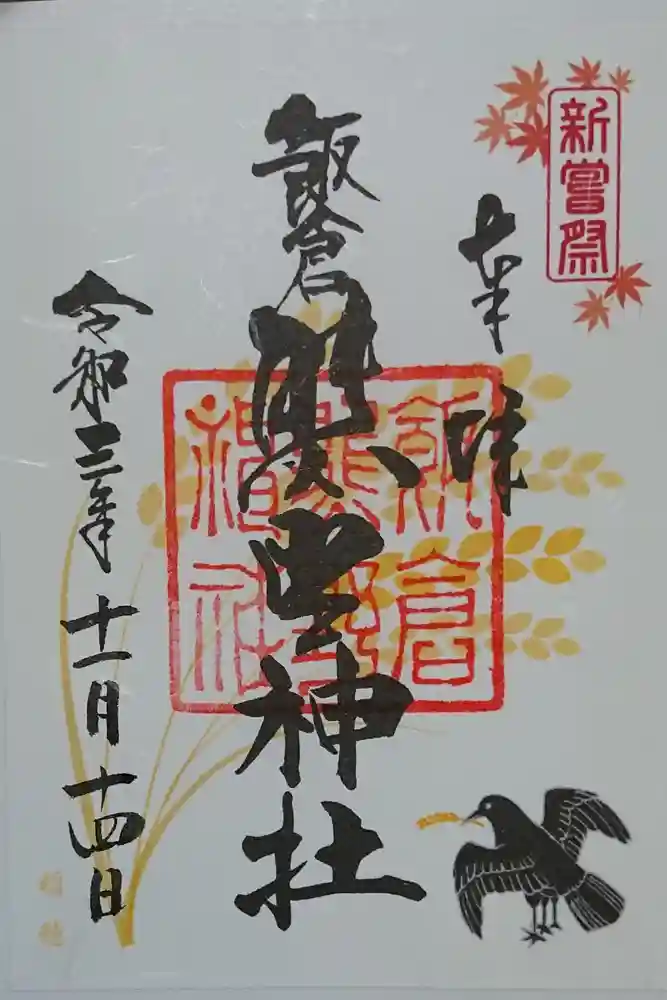 新嘗祭
奉拝
飯倉
熊野神社
飯倉
熊野
神社
令和三年十一月十四日
稲穂